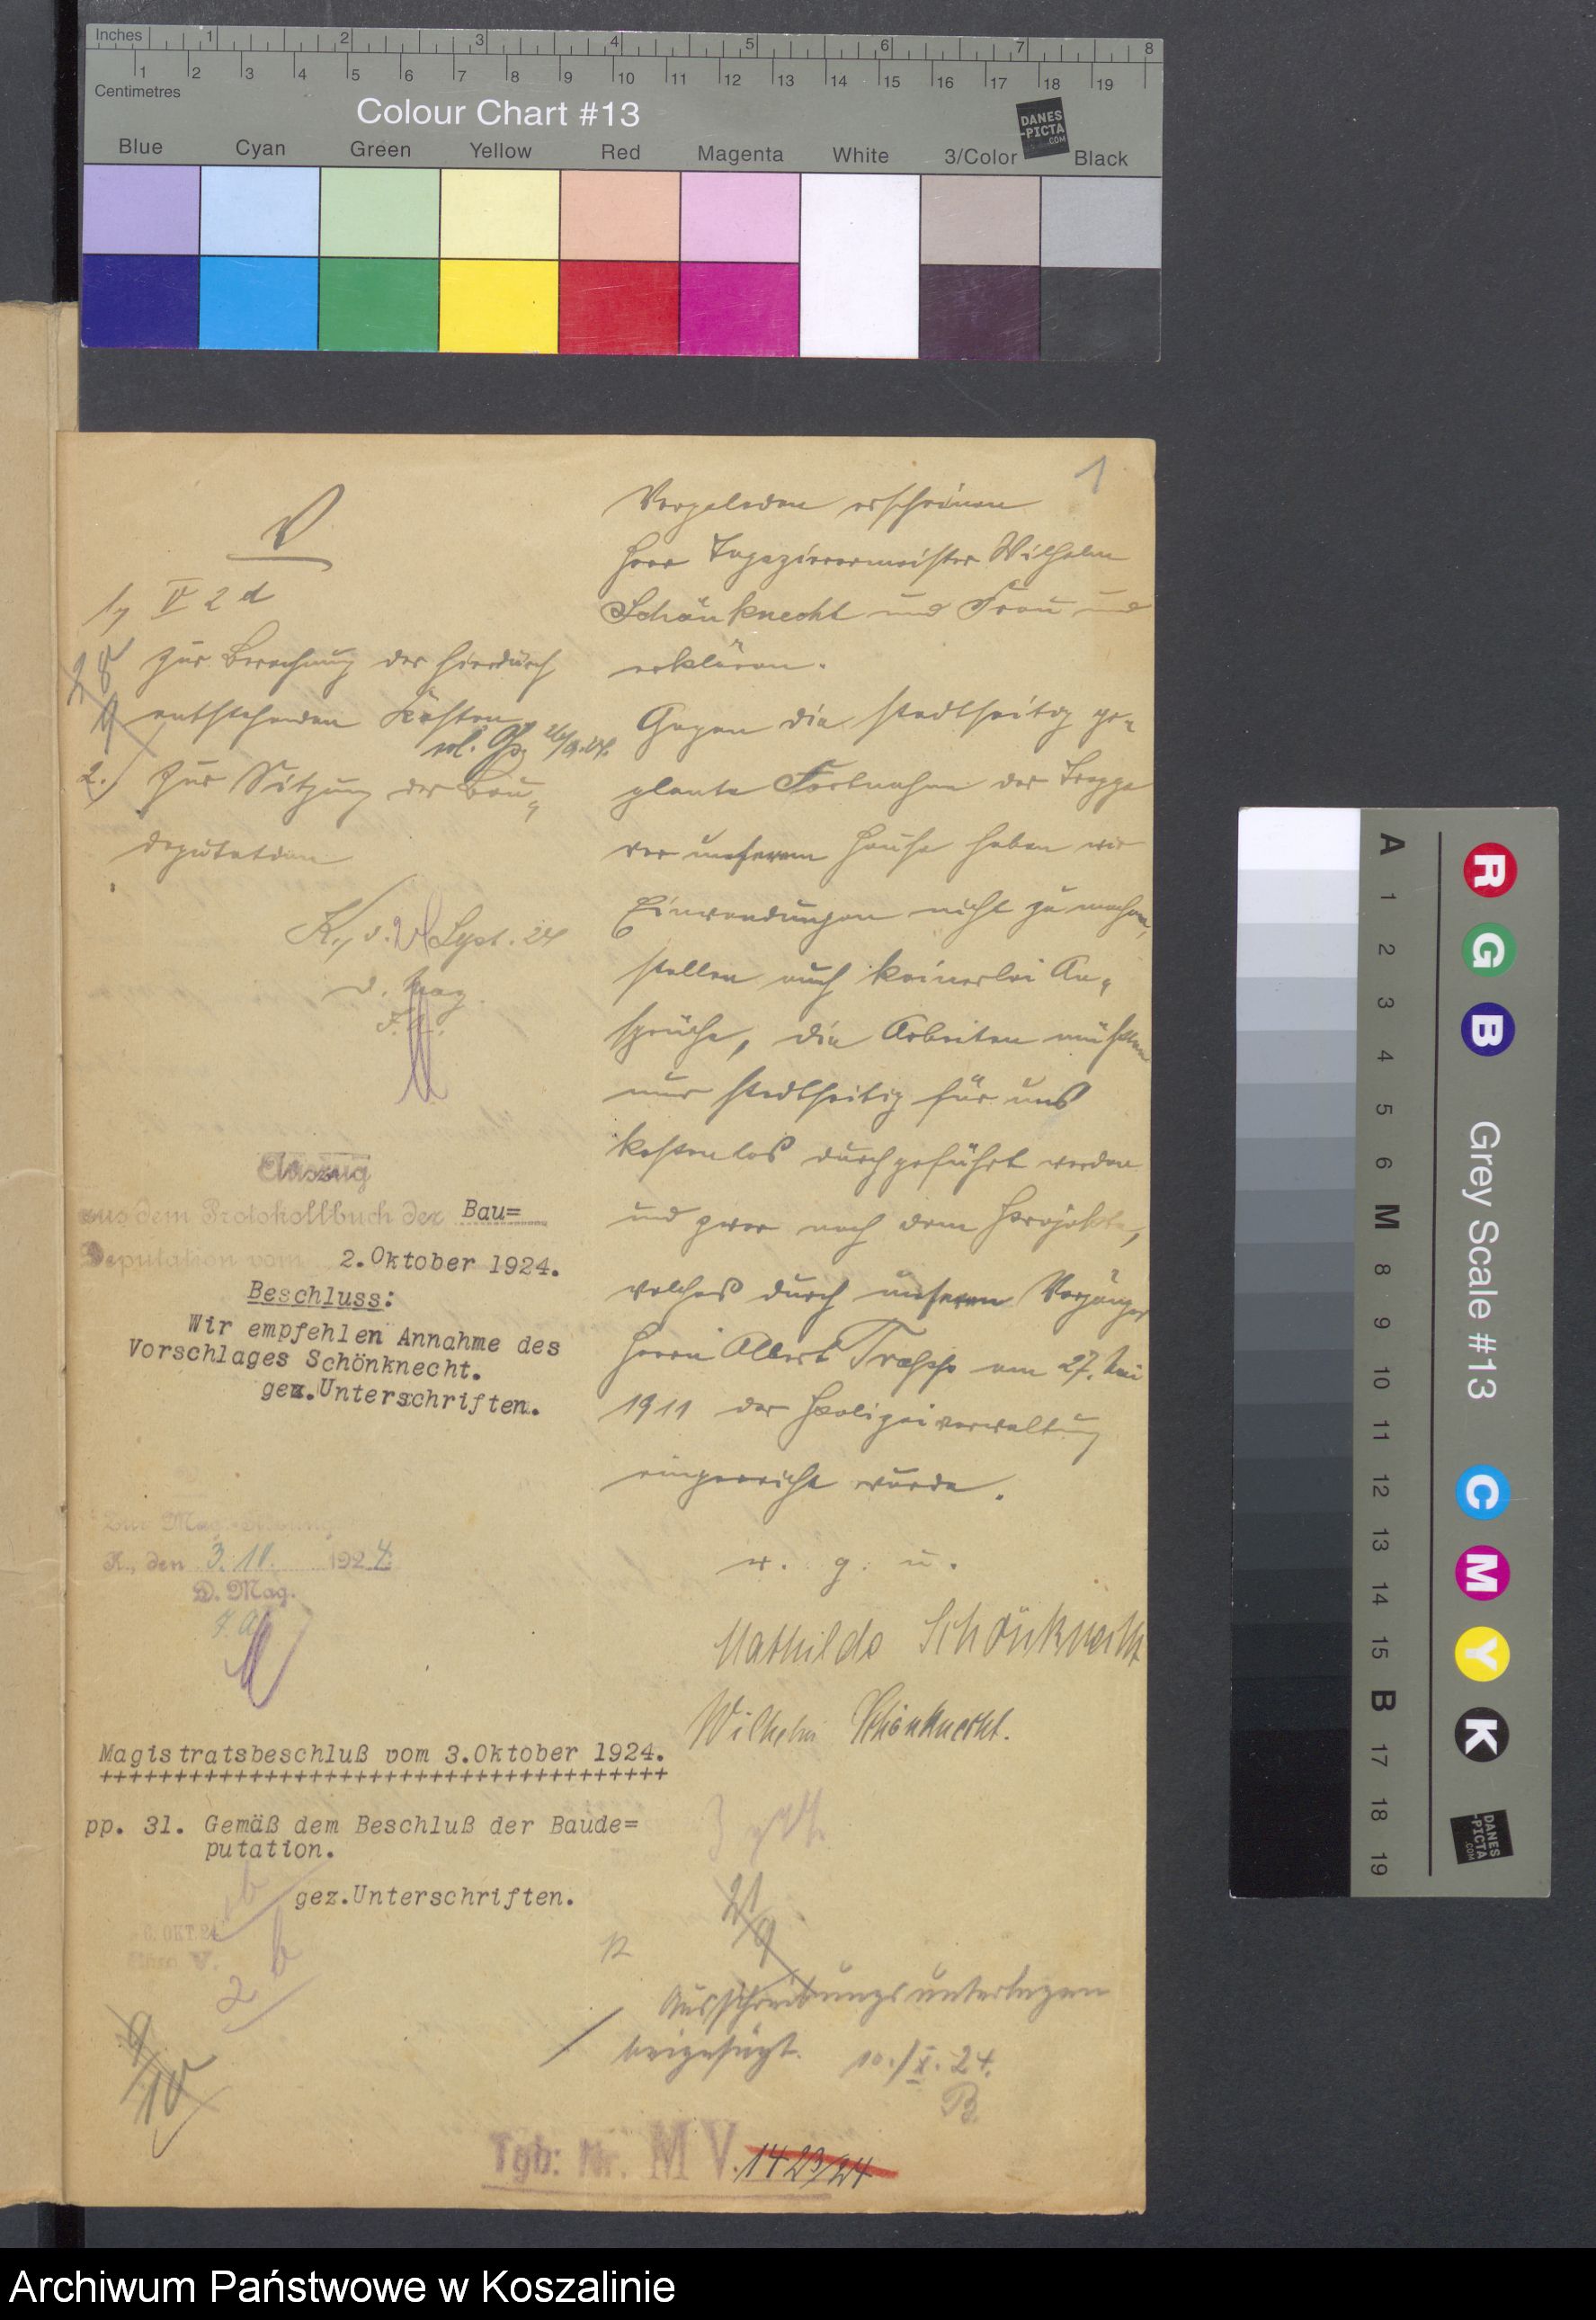 Inches 1 2 3 4 5 6 7 8
1 2 3 4 5 6 7 8 9 10 11 12 13 14 15 16 17 18 19
Centimetres
Colour Chart #13
DANES-PICTA.COM
Blue Cyan Green Yellow Red Magenta White 3/Color Black
1
Vorgeladen erscheinen
Herr Tapezierermeister Wilhelm
Schönknecht und Frau und
erklären.
Gegen die stadtseitig ge-
plante Fortnahme der Treppe
vor unserem Hause haben wir
Einwendungen nicht zu machen,
stellen auch keinerlei An-
sprüche, die Arbeiten müssen
nur stadtseitig für uns
kostenlos durchgeführt werden
und zwar nach dem Projekte,
welches durch unseren Vorgänger
Herrn Albert am 27. Mai
1911 der Polizeiverwaltung
eingereicht wurde.
v. g. u.
Mathilde Schönknecht
Wilhelm Schönknecht.
V
1, V 2 d
zur Berechnung der hierdurch
entstehenden Kosten
2.) Zur Sitzung der Bau-
deputation
K., d. Sept. 24
D. Mag.
Auszug
aus dem Protokollbuch der Bau=
Deputation vom 2.Oktober 1924.
Beschluss:
Wir empfehlen Annahme des
Vorschlages Schönknecht.
gez.Unterschriften.
Zur Mag.-Sitzung
K., den 3.10. 1924.
D. Mag.
J. A.
Magistratsbeschluß vom 3.Oktober 1924.
++++++++++++++++++++++++++++++++++++++
pp. 31. Gemäß dem Beschluß der Baude=
putation.
gez.Unterschriften.
6. OKT. 24
Büro V.
9/10
21/9
Ausschreibungsunterlagen
beigefügt. 10./X. 24.
B.
Tgb: Nr. M V. 1423/24
A 1 2 3 4 5 6 M 8 9 10 11 12 13 14 15 B 17 18 19
R G B Grey Scale #13 C M Y K
DANES-PICTA.COM
Archiwum Państwowe w Koszalinie